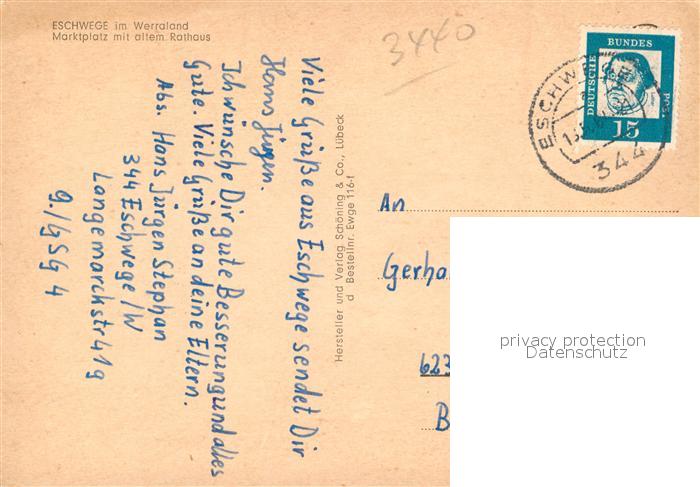 ESCHWEGE im Werraland
Marktplatz mit altem Rathaus
3440
Viele Grüße aus Eschwege sendet Dir
Hans Jürgen.
Ich wünsche Dir gute Besserung und alles
Gute. Viele Grüße an deine Eltern.
Abs. Hans Jürgen Stephan
344 Eschwege/W
Langemarckstr 41g
9./GSG 4
Hersteller und Verlag Schöning & Co., Lübeck
d Bestellnr. Ewge 116-f
DEUTSCHE BUNDES POST
15
ESCHWEGE
344
An
Gerha
623
B
privacy protection
Datenschutz